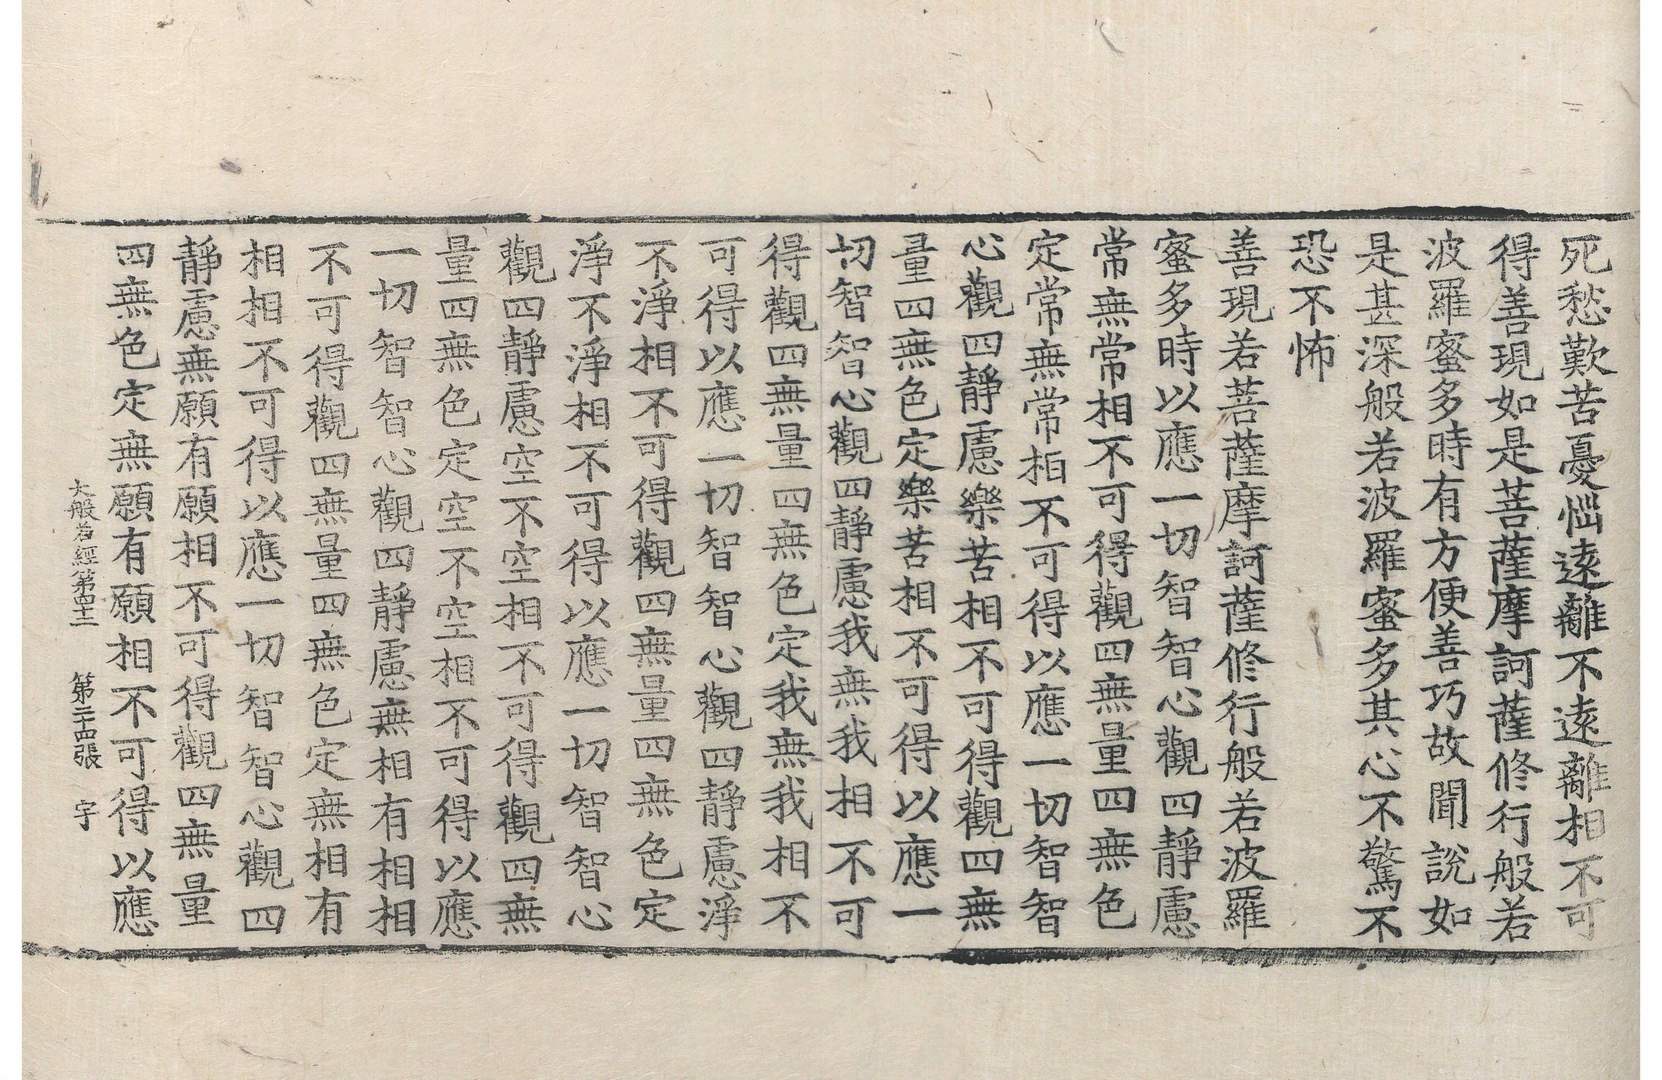 死愁歎苦憂惱遠離不遠離相不可
得善現如是菩薩摩訶薩修行般若
波羅蜜多時有方便善巧故聞說如
是甚深般若波羅蜜多其心不驚不
恐不怖
善現若菩薩摩訶薩修行般若波羅
蜜多時以應一切智智心觀四靜慮
常無常相不可得觀四無量四無色
定常無常相不可得以應一切智智
心觀四靜慮樂苦相不可得觀四無
量四無色定樂苦相不可得以應一
切智智心觀四靜慮我無我相不可
得觀四無量四無色定我無我相不
可得以應一切智智心觀四靜慮淨
不淨相不可得觀四無量四無色定
淨不淨相不可得以應一切智智心
觀四靜慮空不空相不可得觀四無
量四無色定空不空相不可得以應
一切智智心觀四靜慮無相有相相
不可得觀四無量四無色定無相有
相相不可得以應一切智智心觀四
靜慮無願有願相不可得觀四無量
四無色定無願有願相不可得以應
大般若經第四十二　第二十四張　宇